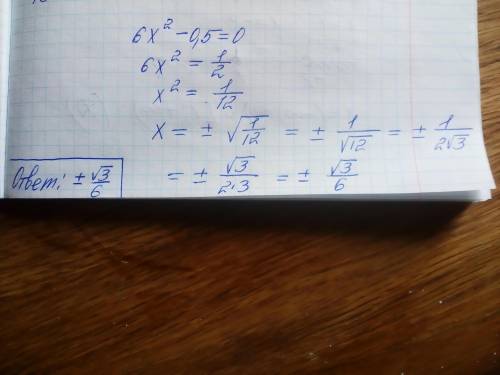 6x² - 0,5 = 0
6x² = 1/2
x² = 1/12
x = ± √(1/12) = ± 1/√12 = ± 1/(2√3)
= ± √3/(2·3) = ± √3/6
Ответ: ± √3/6